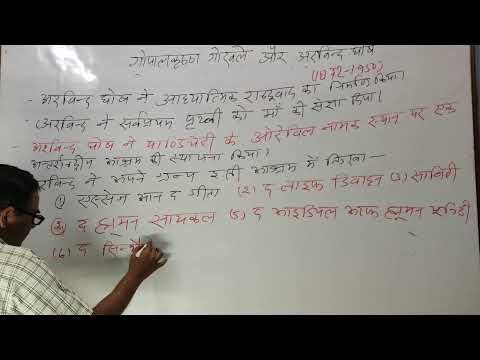 गोपालकृष्ण गोखले और अरविन्द घोष
(1872-1950)
- अरविन्द घोष ने आध्यात्मिक राष्ट्रवाद का निर्माण किया।
- अरविन्द ने सर्वप्रथम पृथ्वी को माँ की संज्ञा दिया।
- अरविन्द घोष ने पाण्डिचेरी के ओरोविल नामक स्थान पर एक
आश्रम की स्थापना किया।
अरविन्द ने अपने ग्रन्थ इसी आश्रम में लिखा—
(1) एस्सेस आन द गीता (2) द लाइफ डिवाइन (3) सावित्री
(4) द ह्यूमन सायकल (5) द आइडियल आफ ह्यूमन
(6) द